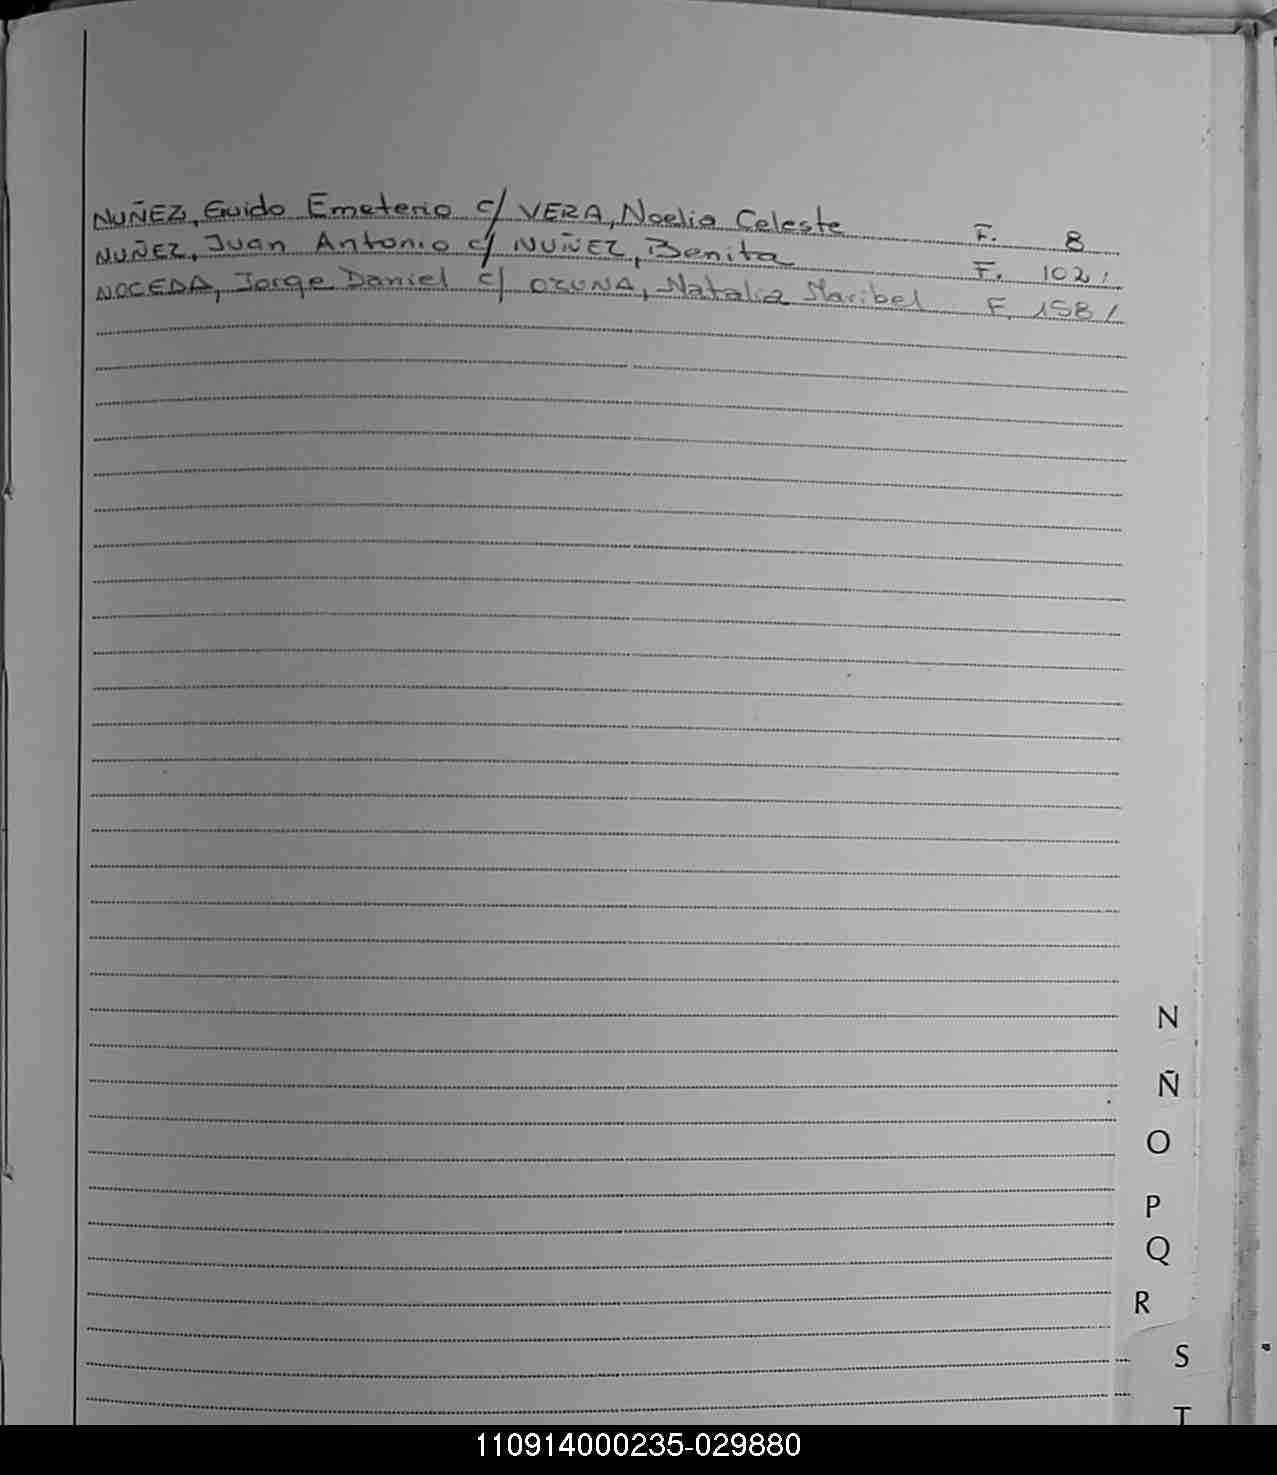 NUÑEZ, Guido Emeterio c/ VERA, Noelia Celeste F. 8
NUÑEZ, Juan Antonio c/ NUÑEZ, Benita F. 102 /
NOCEDA, Jorge Daniel c/ OZUNA, Natalia Maribel F. 158 /
N
Ñ
O
P
Q
R
S
T
110914000235-029880